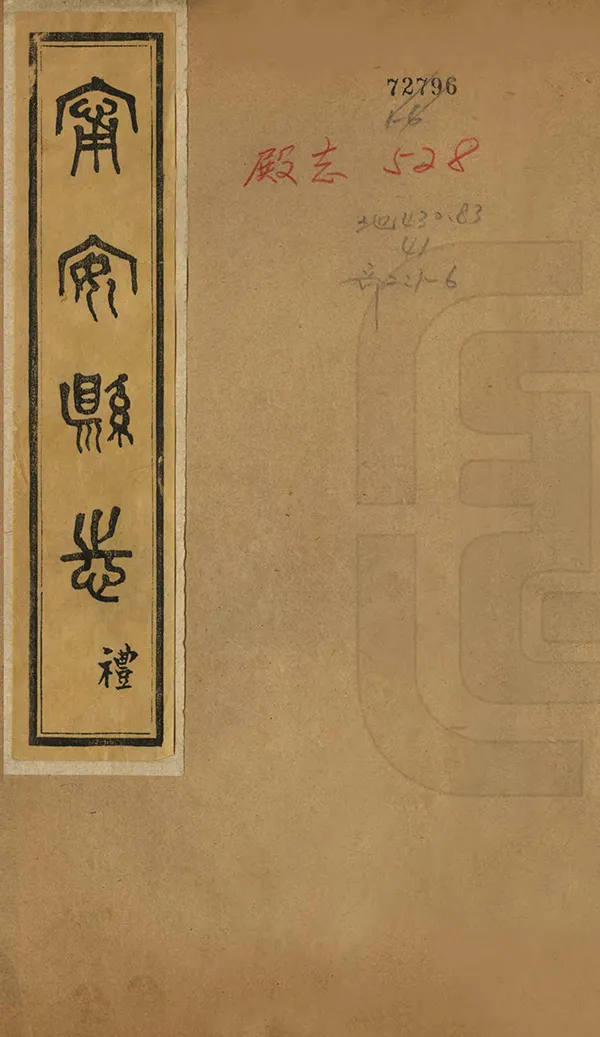 甯安縣志
禮
72796
1-6
殿志 528
地430.83
41
部2:1-6